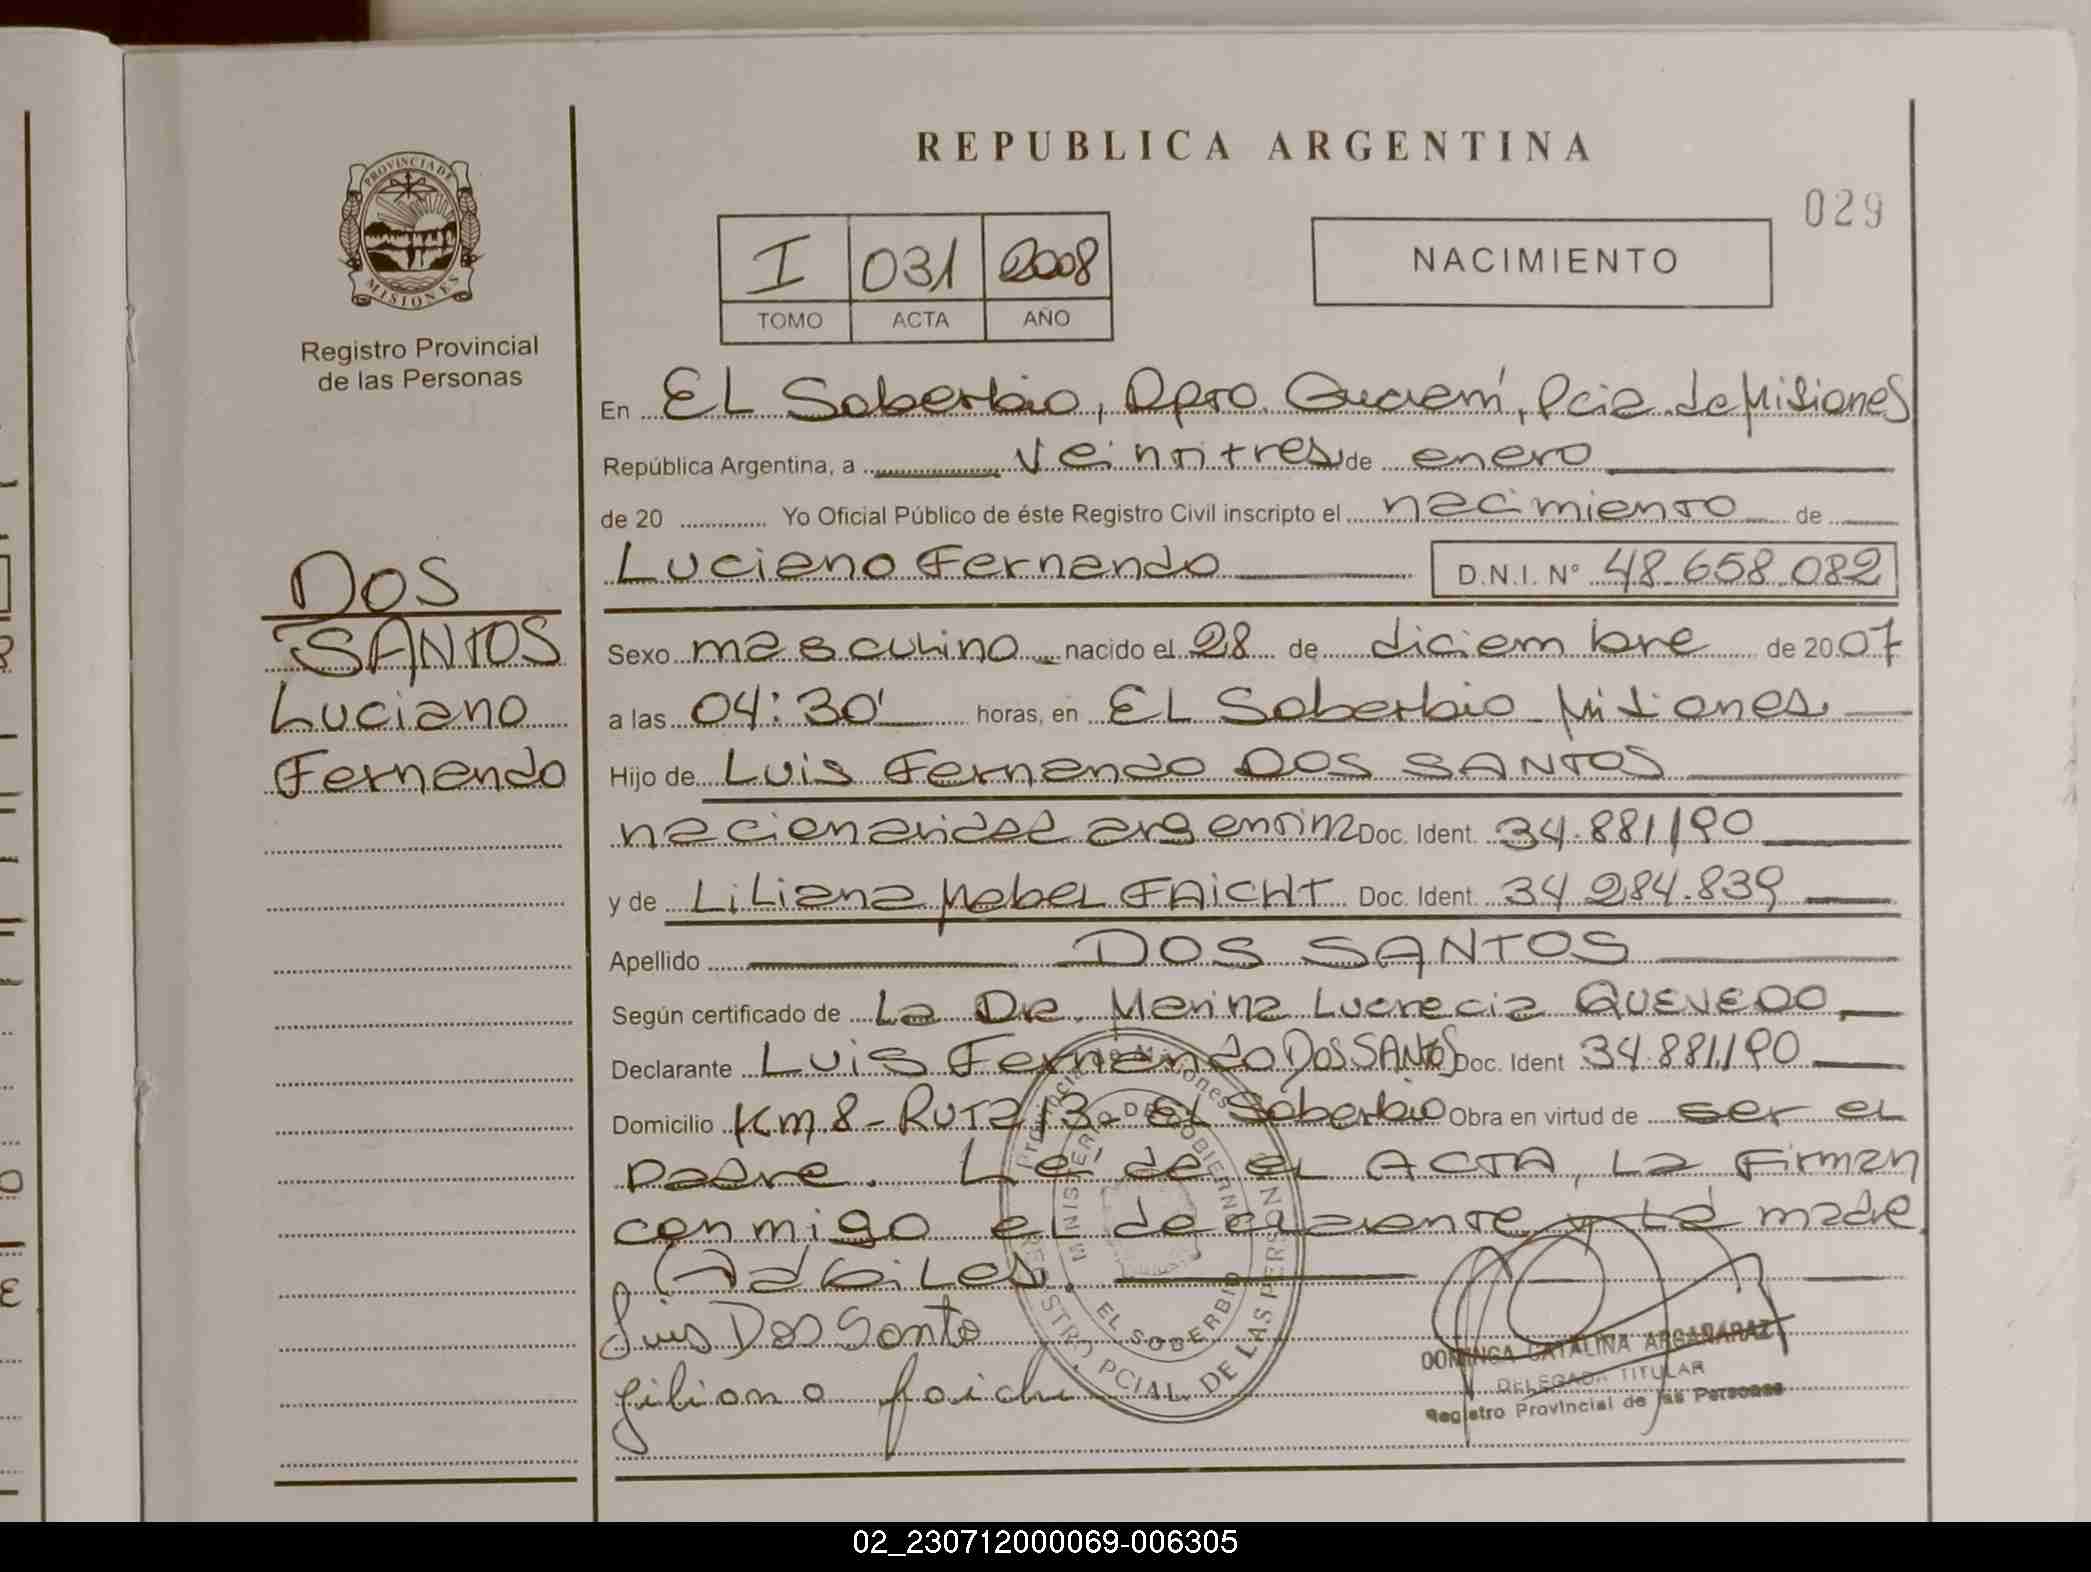 REPUBLICA ARGENTINA
029
PROVINCIA DE
MISIONES
Registro Provincial
de las Personas
I 031 2008
TOMO ACTA AÑO
NACIMIENTO
En EL Soberbio, Dpto. Guaraní, Pcia de Misiones
República Argentina, a veintitres de enero
de 20 ............. Yo Oficial Público de éste Registro Civil inscripto el nacimiento de
Luciano Fernando D.N.I. N° 48.658.082
DOS
SANTOS
Luciano
Fernando
Sexo masculino nacido el 28 de diciembre de 2007
a las 04:30' horas, en EL Soberbio Misiones
Hijo de Luis Fernando DOS SANTOS
nacionalidad argentina Doc. Ident. 34.881.190
y de LiLiana Mabel FAICHT Doc. Ident. 34.284.839
Apellido DOS SANTOS
Según certificado de La Dra. Marina Lucrecia QUEVEDO
Declarante Luis Fernando DOS SANTOS Doc. Ident 34.881.190
Domicilio Km 8 - Ruta 13 - EL Soberbio Obra en virtud de ser el
padre. Leída el ACTA, La Firman
conmigo el declarante y la madre
Luis Dos Santo
Liliana Faich
Provincia de Misiones
MINISTERIO DE GOBIERNO
EL SOBERBIO
REGISTRO PCIAL. DE LAS PERSONAS
DOMINGA CATALINA ARGAÑARAZ
DELEGADA TITULAR
Registro Provincial de las Personas
02_230712000069-006305